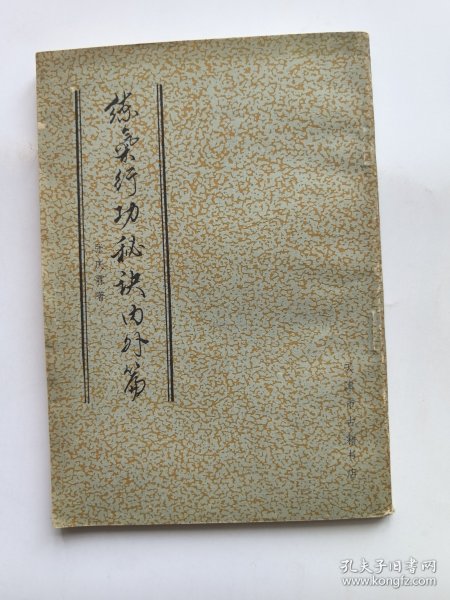 练气行功秘诀内外篇
张庆霖著
天津市古籍书店
孔夫子旧书网
www.kongfz.com